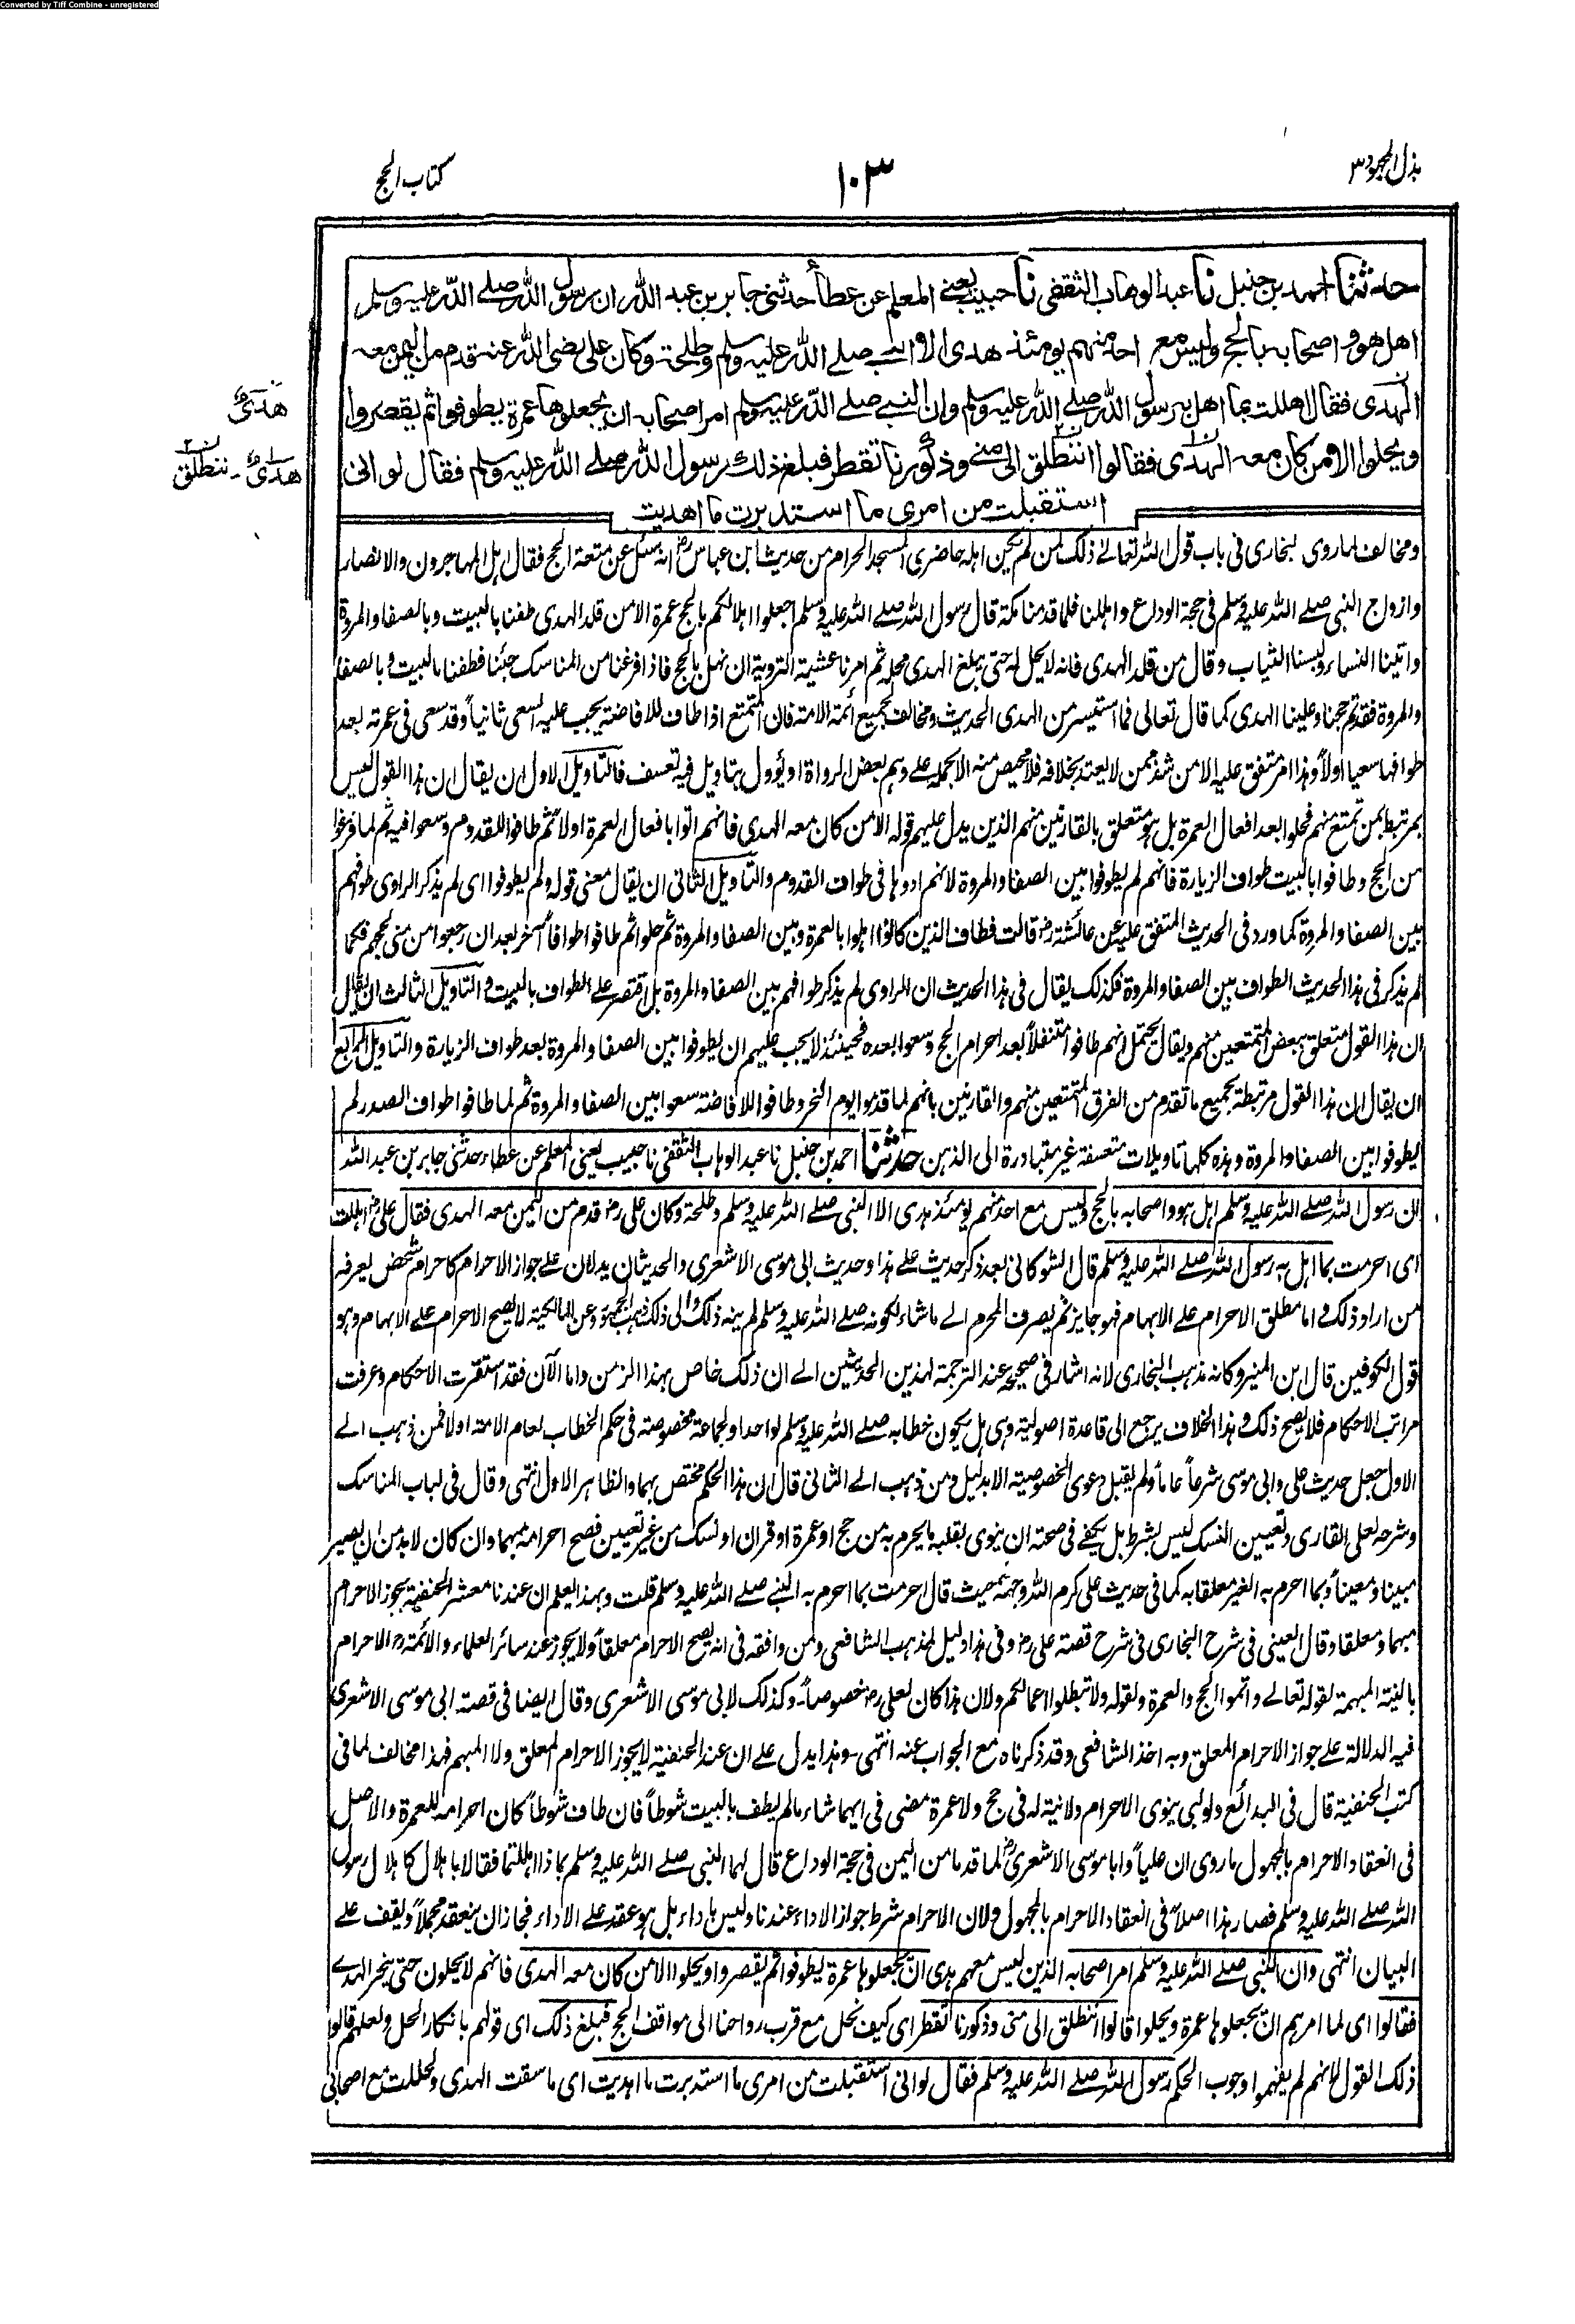 Converted by Tiff Combine - unregistered
بذل المجهود ٣
١٠٣
كتاب الحج
حدثنا احمد بن حنبل نا عبد الوهاب الثقفى نا حبيب يعنى المعلم عن عطاء حدثنى جابر بن عبد الله ان رسول الله صلى الله عليه وسلم
اهل هو و اصحابه بالحج وليس مع احد منهم يومئذ هدى الا النبى صلى الله عليه وسلم وطلحة وكان على رضى الله عنه قدم من اليمن معه
الهدى فقال اهللت بما اهل به رسول الله صلى الله عليه وسلم وان النبى صلى الله عليه وسلم امر اصحابه ان يجعلوها عمرة يطوفوا ثم يقصروا
ويحلوا الا من كان معه الهدى فقالوا اننطلق الى منى وذكورنا تقطر فبلغ ذلك رسول الله صلى الله عليه وسلم فقال لو انى
استقبلت من امرى ما استدبرت ما اهديت
هدى
هدى ـ ننطلق
ومخالف لما روى البخارى فى باب قول الله تعالى ذلك لمن لم يكن اهله حاضرى المسجد الحرام من حديث ابن عباس رض انه سئل عن متعة الحج فقال اهل المهاجرون والانصار
وازواج النبى صلى الله عليه وسلم فى حجة الوداع واهللنا فلما قدمنا مكة قال رسول الله صلى الله عليه وسلم اجعلوا اهلالكم بالحج عمرة الا من قلد الهدى طفنا بالبيت وبالصفا والمروة
واتينا النساء ولبسنا الثياب وقال من قلد الهدى فانه لا يحل له حتى يبلغ الهدى محله ثم امرنا عشية التروية ان نهل بالحج فاذا فرغنا من المناسك جئنا فطفنا بالبيت وبالصفا
والمروة فقد تم حجنا وعلينا الهدى كما قال تعالى فما استيسر من الهدى الحديث ومخالف لجميع ائمة الامة فان المتمتع اذا طاف للافاضة يجب عليه السعى ثانياً وقد سعى فى عمرته بعد
طوافها سعيا اولاً وهذا امر متفق عليه الا من شذ ممن لا يعتد بخلافه فلا محيص منه الا بحمله على وهم بعض الرواة او يؤول بتاويل فيه تعسف فالتاويل الاول ان يقال ان هذا القول ليس
بمرتبط بمن تمتع منهم فحلوا بعد افعال العمرة بل هو متعلق بالقارنين منهم الذين يدل عليهم قوله الا من كان معه الهدى فانهم اتوا بافعال العمرة اولا ثم طافوا للقدوم وسعوا فيه ثم لما فرغوا
من الحج وطافوا بالبيت طواف الزيارة فانهم لم يطوفوا بين الصفا والمروة لانهم ادوها فى طواف القدوم والتاويل الثانى ان يقال معنى قوله ولم يطوفوا اى لم يذكر الراوى طوافهم
بين الصفا والمروة كما ورد فى الحديث المتفق عليه عن عائشة رض قالت فطاف الذين كانوا اهلوا بالعمرة وبين الصفا والمروة ثم حلوا ثم طافوا طوافاً آخر بعد ان رجعوا من منى لحجهم فكما
لم يذكر فى هذا الحديث الطواف بين الصفا والمروة فكذلك يقال فى هذا الحديث ان الراوى لم يذكر طوافهم بين الصفا والمروة بل اقتصر على الطواف بالبيت والتاويل الثالث ان يقال
ان هذا القول متعلق ببعض المتمتعين منهم ويقال يحتمل انهم طافوا متنفلاً بعد احرام الحج وسعوا بعده فحينئذ لا يجب عليهم ان يطوفوا بين الصفا والمروة بعد طواف الزيارة والتاويل الرابع
ان يقال ان هذا القول مرتبطة بجميع ما تقدم من الفرق المتمتعين منهم والقارنين بانهم لما قدموا يوم النحر وطافوا للافاضة سعوا بين الصفا والمروة ثم لما طافوا طواف الصدر لم
يطوفوا بين الصفا والمروة وهذه كلها تاويلات متعسفة غير متبادرة الى الذهن حدثنا احمد بن حنبل نا عبد الوهاب الثقفى نا حبيب يعنى المعلم عن عطاء حدثنى جابر بن عبد الله
ان رسول الله صلى الله عليه وسلم اهل هو واصحابه بالحج وليس مع احد منهم يومئذ هدى الا النبى صلى الله عليه وسلم وطلحة وكان على رض قدم من اليمن معه الهدى فقال على رض اهللت
اى احرمت بما اهل به رسول الله صلى الله عليه وسلم قال الشوكانى بعد ذكر حديث على هذا وحديث ابى موسى الاشعرى والحديثان يدلان على جواز الاحرام كاحرام شخص يعرفه
من اراد ذلك واما مطلق الاحرام على الابهام فهو جايز ثم يصرف المحرم الى ما شاء لكونه صلى الله عليه وسلم لم ينه ذلك والى ذلك ذهب الجمهور وعن المالكية لا يصح الاحرام على الابهام وهو
قول الكوفين قال ابن المنير وكانه مذهب البخارى لانه اشار فى صحيحه عند الترجمة لهذين الحديثين الى ان ذلك خاص بهذا الزمن واما الآن فقد استقرت الاحكام وعرفت
مراتب الاحكام فلا يصح ذلك وهذا الخلاف يرجع الى قاعدة اصولية وهى هل يكون خطابه صلى الله عليه وسلم لواحد او لجماعة مخصوصة فى حكم الخطاب لعام الامة او لا فمن ذهب الى
الاول جعل حديث على وابى موسى شرعاً عاماً ولم يقبل دعوى الخصوصية الا بدليل ومن ذهب الى الثانى قال ان هذا الحكم مختص بهما والظاهر الاول انتهى وقال فى لباب المناسك
وشرحه لعلى القارى وتعيين النسك ليس بشرط بل يكفى فى صحته ان ينوى بقلبه ما يحرم به من حج او عمرة او قران او نسك من غير تعيين فصح احرامه مبهما وان كان لا بد من ان يصير
مبينا ومعيناً وبما احرم به الغير معلقا به كما فى حديث على كرم الله وجهه حيث قال احرمت بما احرم به النبى صلى الله عليه وسلم قلت وبهذا يعلم ان عندنا معشر الحنفية يجوز الاحرام
مبهما ومعلقا وقال العينى فى شرح البخارى فى شرح قصة على رض وفى هذا دليل لمذهب الشافعى ومن وافقه فى انه يصح الاحرام معلقاً ولا يجوز عند سائر العلماء والائمة رح الاحرام
بالنية المبهمة لقوله تعالى واتموا الحج والعمرة ولقوله ولا تبطلوا اعمالكم ولان هذا كان لعلى رض خصوصاً وكذلك لابى موسى الاشعرى وقال ايضا فى قصة ابى موسى الاشعرى
فيه الدلالة على جواز الاحرام المعلق وبه اخذ الشافعى وقد ذكرناه مع الجواب عنه انتهى وهذا يدل على ان عند الحنفية لا يجوز الاحرام المعلق ولا المبهم فهذا مخالف لما فى
كتب الحنفية قال فى البدائع ولو لبى ينوى الاحرام ولا نية له فى حج ولا عمرة مضى فى ايهما شاء ما لم يطف بالبيت شوطاً فان طاف شوطاً كان احرامه للعمرة والاصل
فى انعقاد الاحرام بالمجهول ما روى ان علياً وابا موسى الاشعرى رض لما قدما من اليمن فى حجة الوداع قال لهما النبى صلى الله عليه وسلم بماذا اهللتما فقالا باهلال كاهلال رسول
الله صلى الله عليه وسلم فصار هذا اصلا فى انعقاد الاحرام بالمجهول ولان الاحرام شرط جواز الاداء عندنا وليس باداء بل هو عقد على الاداء فجاز ان ينعقد مجملاً ويقف على
البيان انتهى وان النبى صلى الله عليه وسلم امر اصحابه الذين ليس معهم هدى ان يجعلوها عمرة يطوفوا ثم يقصروا ويحلوا الا من كان معه الهدى فانهم لا يحلون حتى ينحر الهدى
فقالوا اى لما امرهم ان يجعلوها عمرة ويحلوا قالوا اننطلق الى منى وذكورنا تقطر اى كيف نحل مع قرب رواحنا الى مواقف الحج فبلغ ذلك اى قولهم بانكار الحل ولعلهم قالوا
ذلك القول لانهم لم يفهموا وجوب الحكم رسول الله صلى الله عليه وسلم فقال لو انى استقبلت من امرى ما استدبرت ما اهديت اى ما سقت الهدى ولحللت مع اصحابى